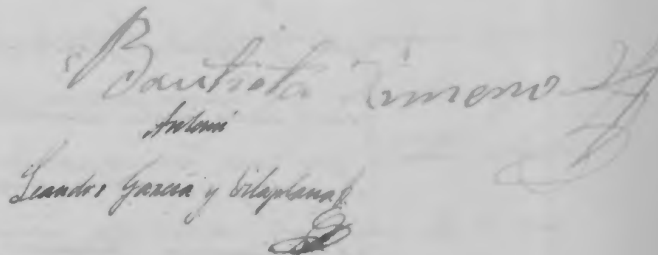 Bautista Ximeno
Antoni
Leandro García y Vilaplana